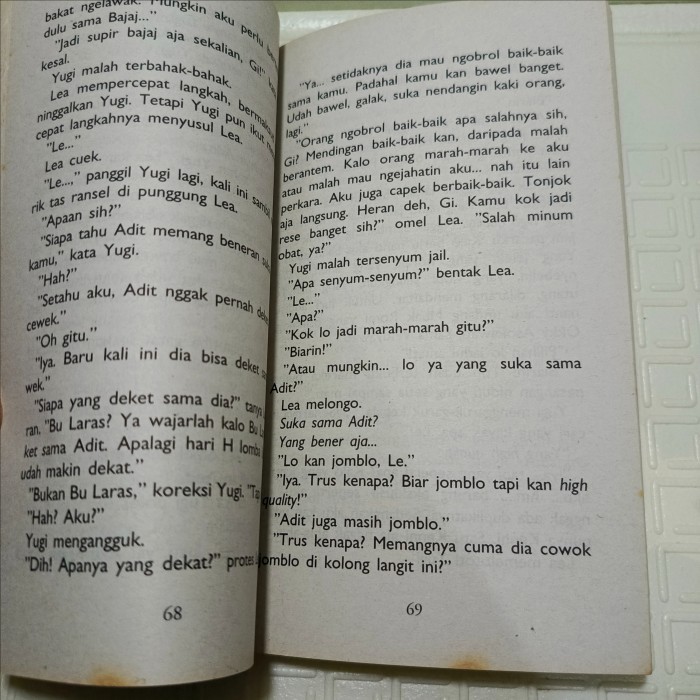 bakat ngelawak. Mungkin aku perlu
dulu sama Bajaj..."
"Jadi supir bajaj aja sekalian, Gi!"
kesal.
Yugi malah terbahak-bahak.
Lea mempercepat langkah,
ninggalkan Yugi. Tetapi Yugi pun ikut
cepat langkahnya menyusul Lea.
"Le..."
Lea cuek.
"Le...," panggil Yugi lagi, kali ini
rik tas ransel di punggung Lea.
"Apaan sih?"
"Siapa tahu Adit memang beneran
kamu," kata Yugi.
"Hah?"
"Setahu aku, Adit nggak pernah
cewek."
"Oh gitu."
"Iya. Baru kali ini dia bisa deket
wek."
"Siapa yang deket sama dia?"
ran. "Bu Laras? Ya wajarlah kalo Bu
ket sama Adit. Apalagi hari H
udah makin dekat."
"Bukan Bu Laras," koreksi Yugi.
"Hah? Aku?"
Yugi mengangguk.
"Dih! Apanya yang dekat?"
68
"Ya... setidaknya dia mau ngobrol baik-baik
sama kamu. Padahal kamu kan bawel banget.
Udah bawel, galak, suka nendangin kaki orang,
lagi."
"Orang ngobrol baik-baik apa salahnya sih,
Gi? Mendingan baik-baik kan, daripada malah
berantem. Kalo orang marah-marah ke aku
atau malah mau ngejahatin aku... nah itu lain
perkara. Aku juga capek berbaik-baik. Tonjok
aja langsung. Heran deh, Gi. Kamu kok jadi
rese banget sih?" omel Lea. "Salah minum
obat, ya?"
Yugi malah tersenyum jail.
"Apa senyum-senyum?" bentak Lea.
"Le..."
"Apa?"
"Kok lo jadi marah-marah gitu?"
"Biarin!"
"Atau mungkin... lo ya yang suka sama
Adit?"
Lea melongo.
Suka sama Adit?
Yang bener aja...
"Lo kan jomblo, Le."
"Iya. Trus kenapa? Biar jomblo tapi kan high
quality!"
"Adit juga masih jomblo."
"Trus kenapa? Memangnya cuma dia cowok
jomblo di kolong langit ini?"
69